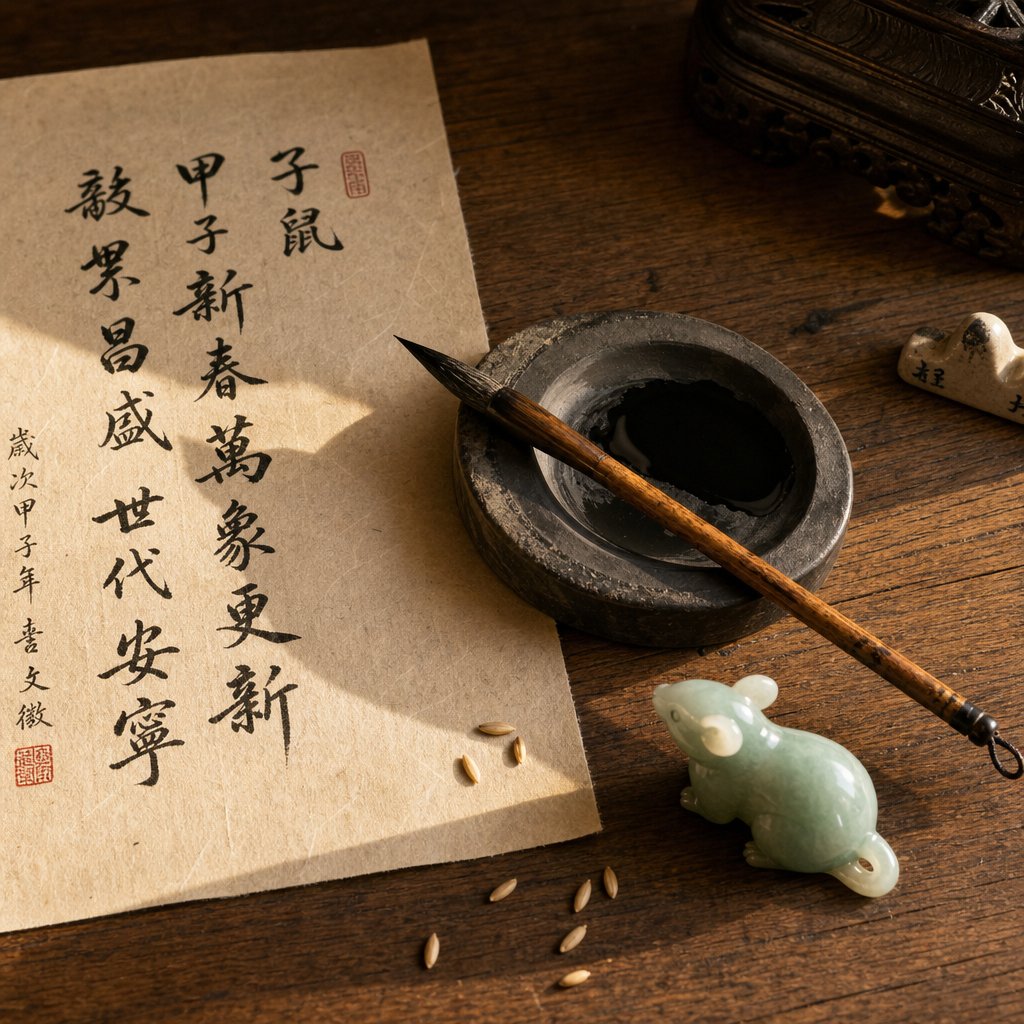 子鼠
甲子新春萬象更新
昌盛世代安寧
歲次甲子年 文徵